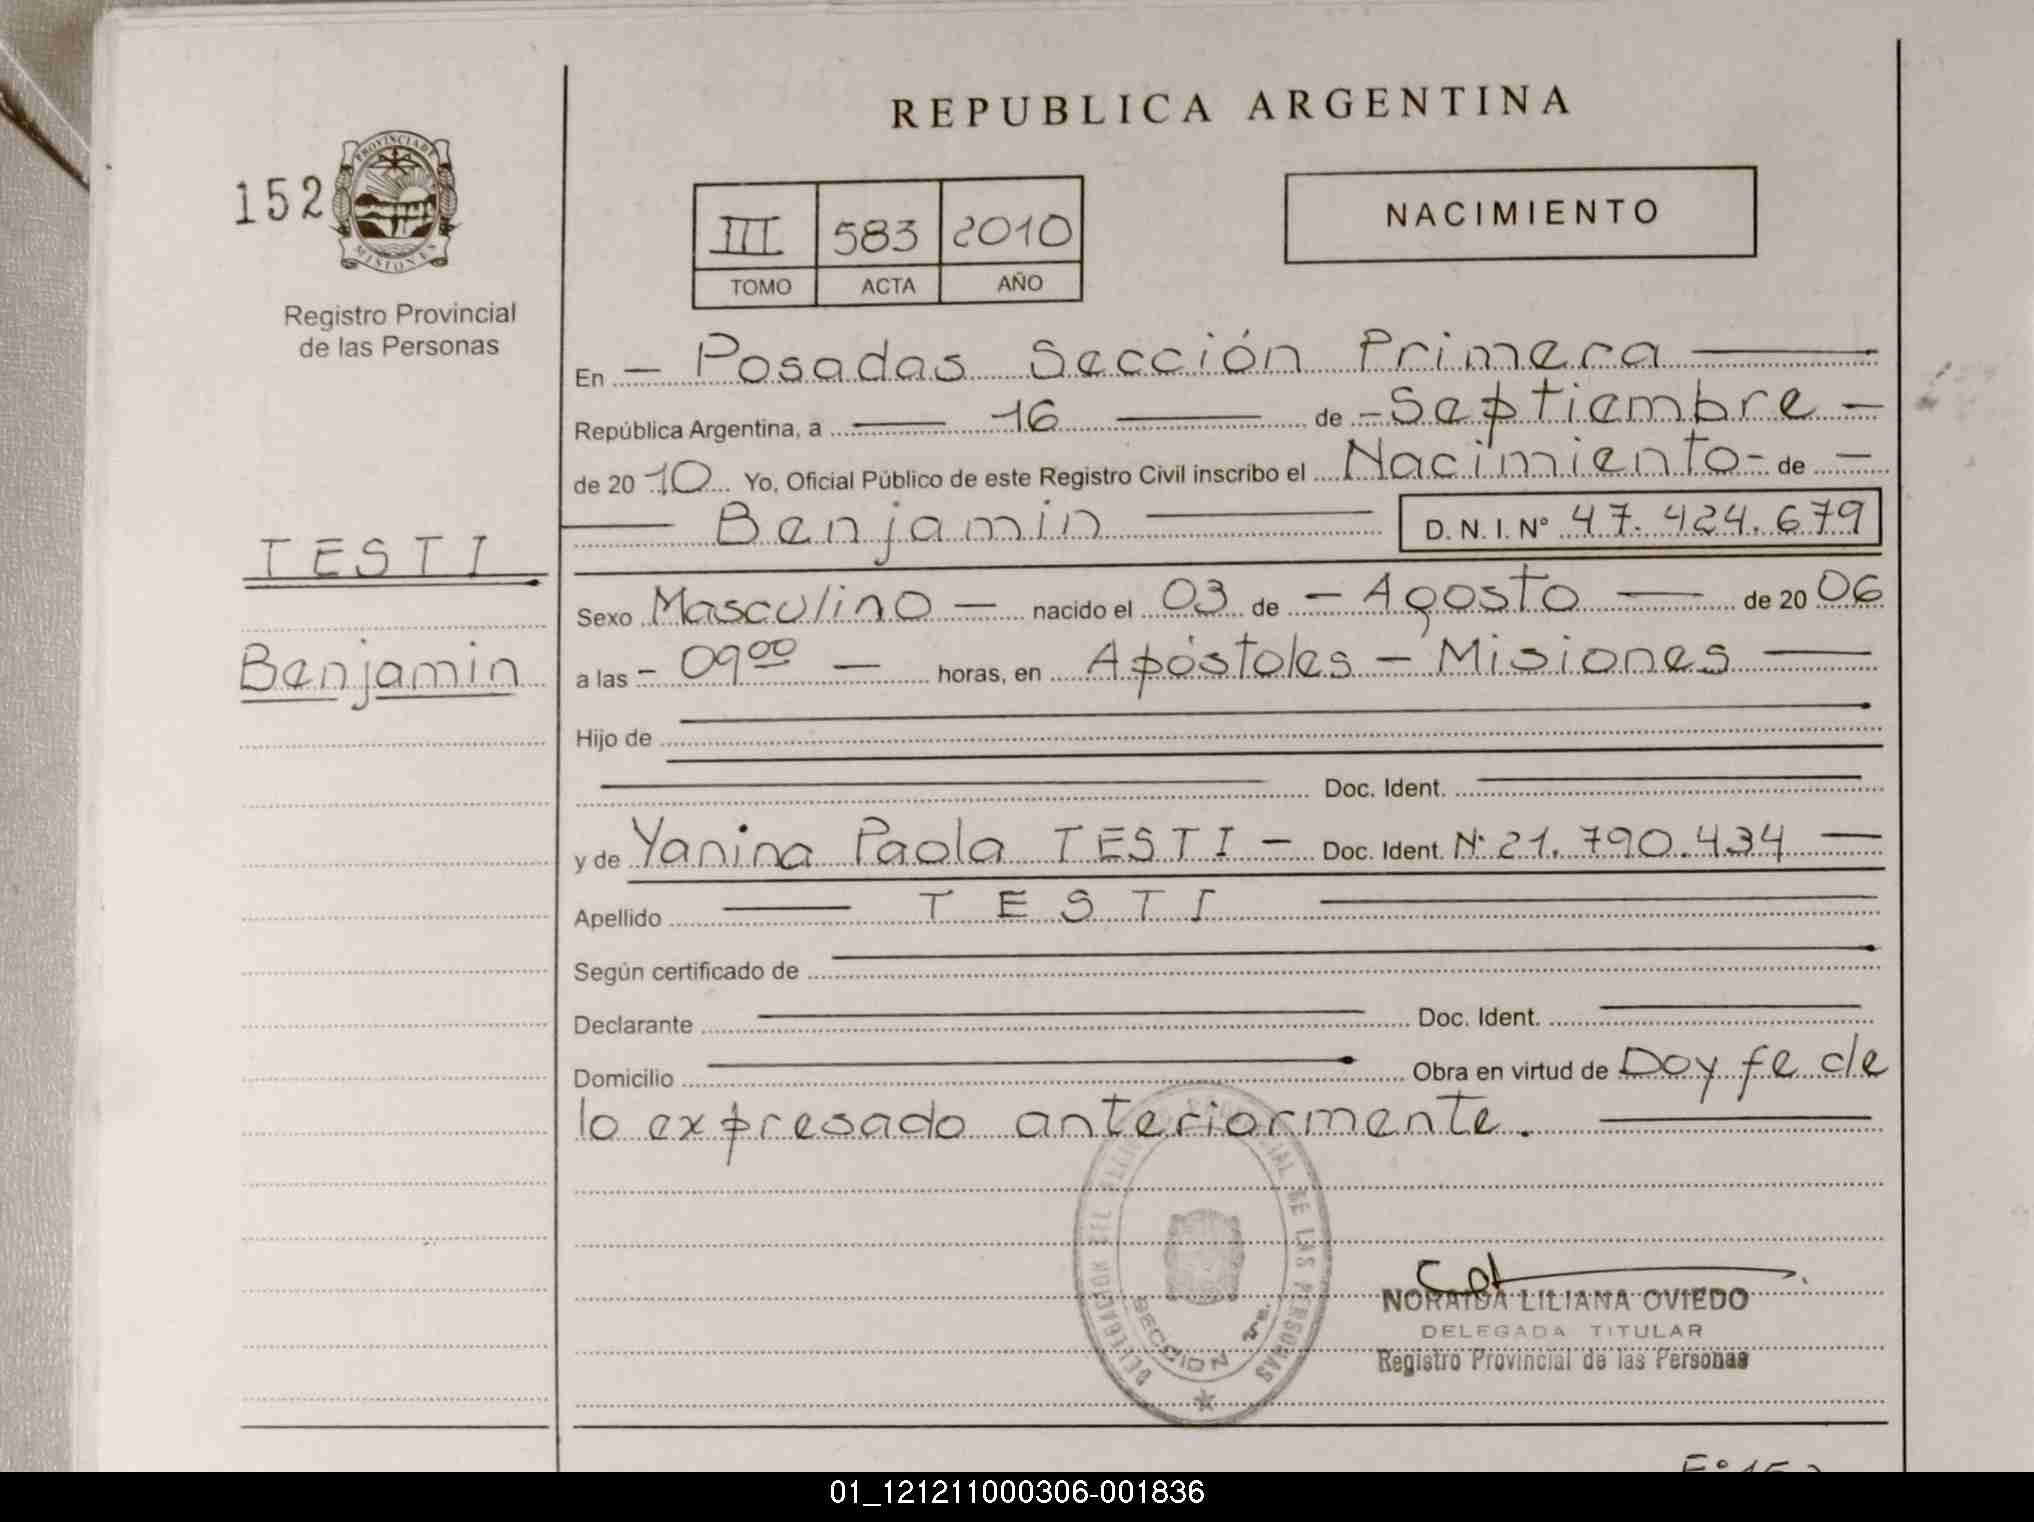 REPUBLICA ARGENTINA
152
PROVINCIA DE
MISIONES
Registro Provincial
de las Personas
III 583 2010
TOMO ACTA AÑO
NACIMIENTO
En - Posadas Sección Primera
República Argentina, a 16 de - Septiembre -
de 20 10 Yo, Oficial Público de este Registro Civil inscribo el Nacimiento - de -
Benjamin D. N. I. Nº 47.424.679
TESTI
Benjamin
Sexo Masculino - nacido el 03 de - Agosto - de 20 06
a las - 09 00 - horas, en Apóstoles - Misiones
Hijo de
Doc. Ident.
y de Yanina Paola TESTI - Doc. Ident. Nº 21.790.434
Apellido TESTI
Según certificado de
Declarante Doc. Ident.
Domicilio Obra en virtud de Doy fe de
lo expresado anteriormente.
DELEGACION DEL DE LAS PERSONAS
SECCION
NORAIDA LILIANA OVIEDO
DELEGADA TITULAR
Registro Provincial de las Personas
01_121211000306-001836